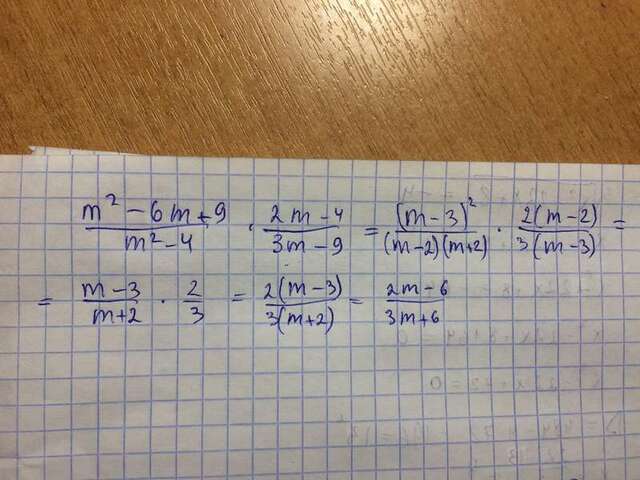 (m² - 6m + 9)/(m² - 4) · (2m - 4)/(3m - 9) = (m - 3)²/((m - 2)(m + 2)) · 2(m - 2)/(3(m - 3)) =
= (m - 3)/(m + 2) · 2/3 = 2(m - 3)/(3(m + 2)) = (2m - 6)/(3m + 6)